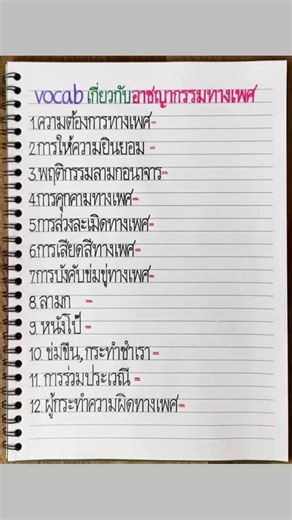 vocab เกี่ยวกับอาชญากรรมทางเพศ
1.ความต้องการทางเพศ-
2.การให้ความยินยอม -
3.พฤติกรรมลามกอนาจาร-
4.การคุกคามทางเพศ-
5.การล่วงละเมิดทางเพศ-
6.การเสียดสีทางเพศ-
7.การบังคับข่มขู่ทางเพศ-
8.ลามก -
9. หนังโป๊ -
10. ข่มขืน,กระทำชำเรา -
11. การร่วมประเวณี -
12. ผู้กระทำความผิดทางเพศ-